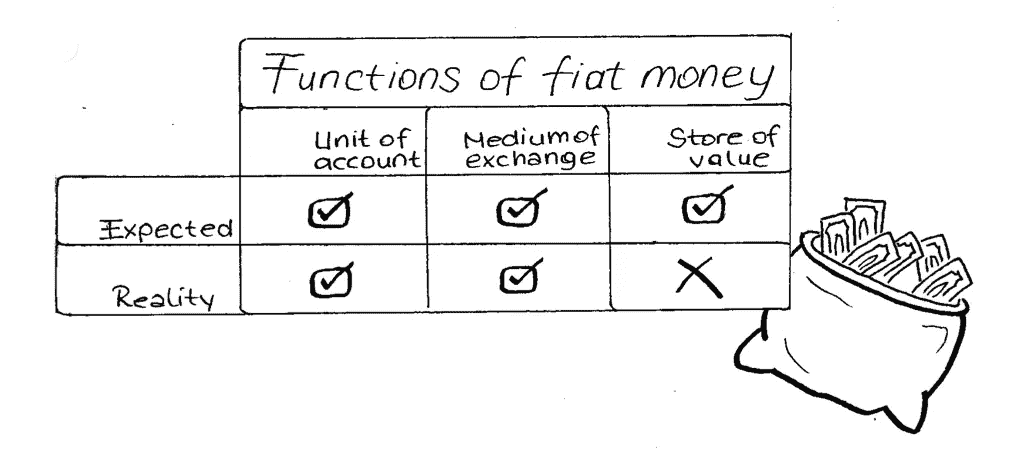 Functions of fiat money
Unit of
account
Medium of
exchange
Store of
value
Expected
Reality